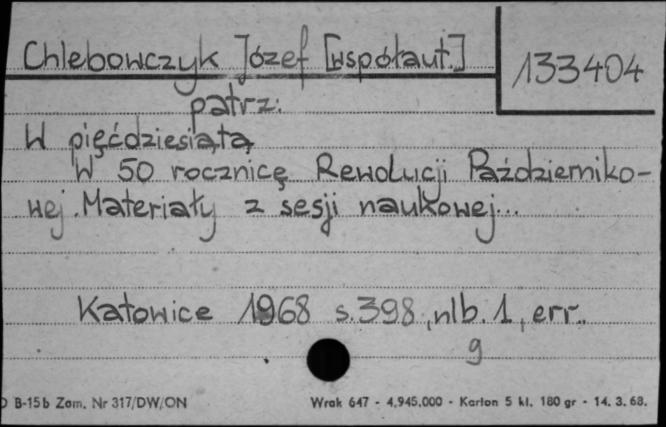 Chlebowczyk Józef [współaut.]
133404
patrz:
W pięćdziesiątą
W 50 rocznicę Rewolucji Październiko-
wej. Materiały z sesji naukowej...
Katowice 1968 s.398, nlb. 1, err.
g
B-15b Zam. Nr 317/DW/ON
Wrak 647 - 4.945.000 - Karton 5 kl. 180 gr - 14. 3. 68.